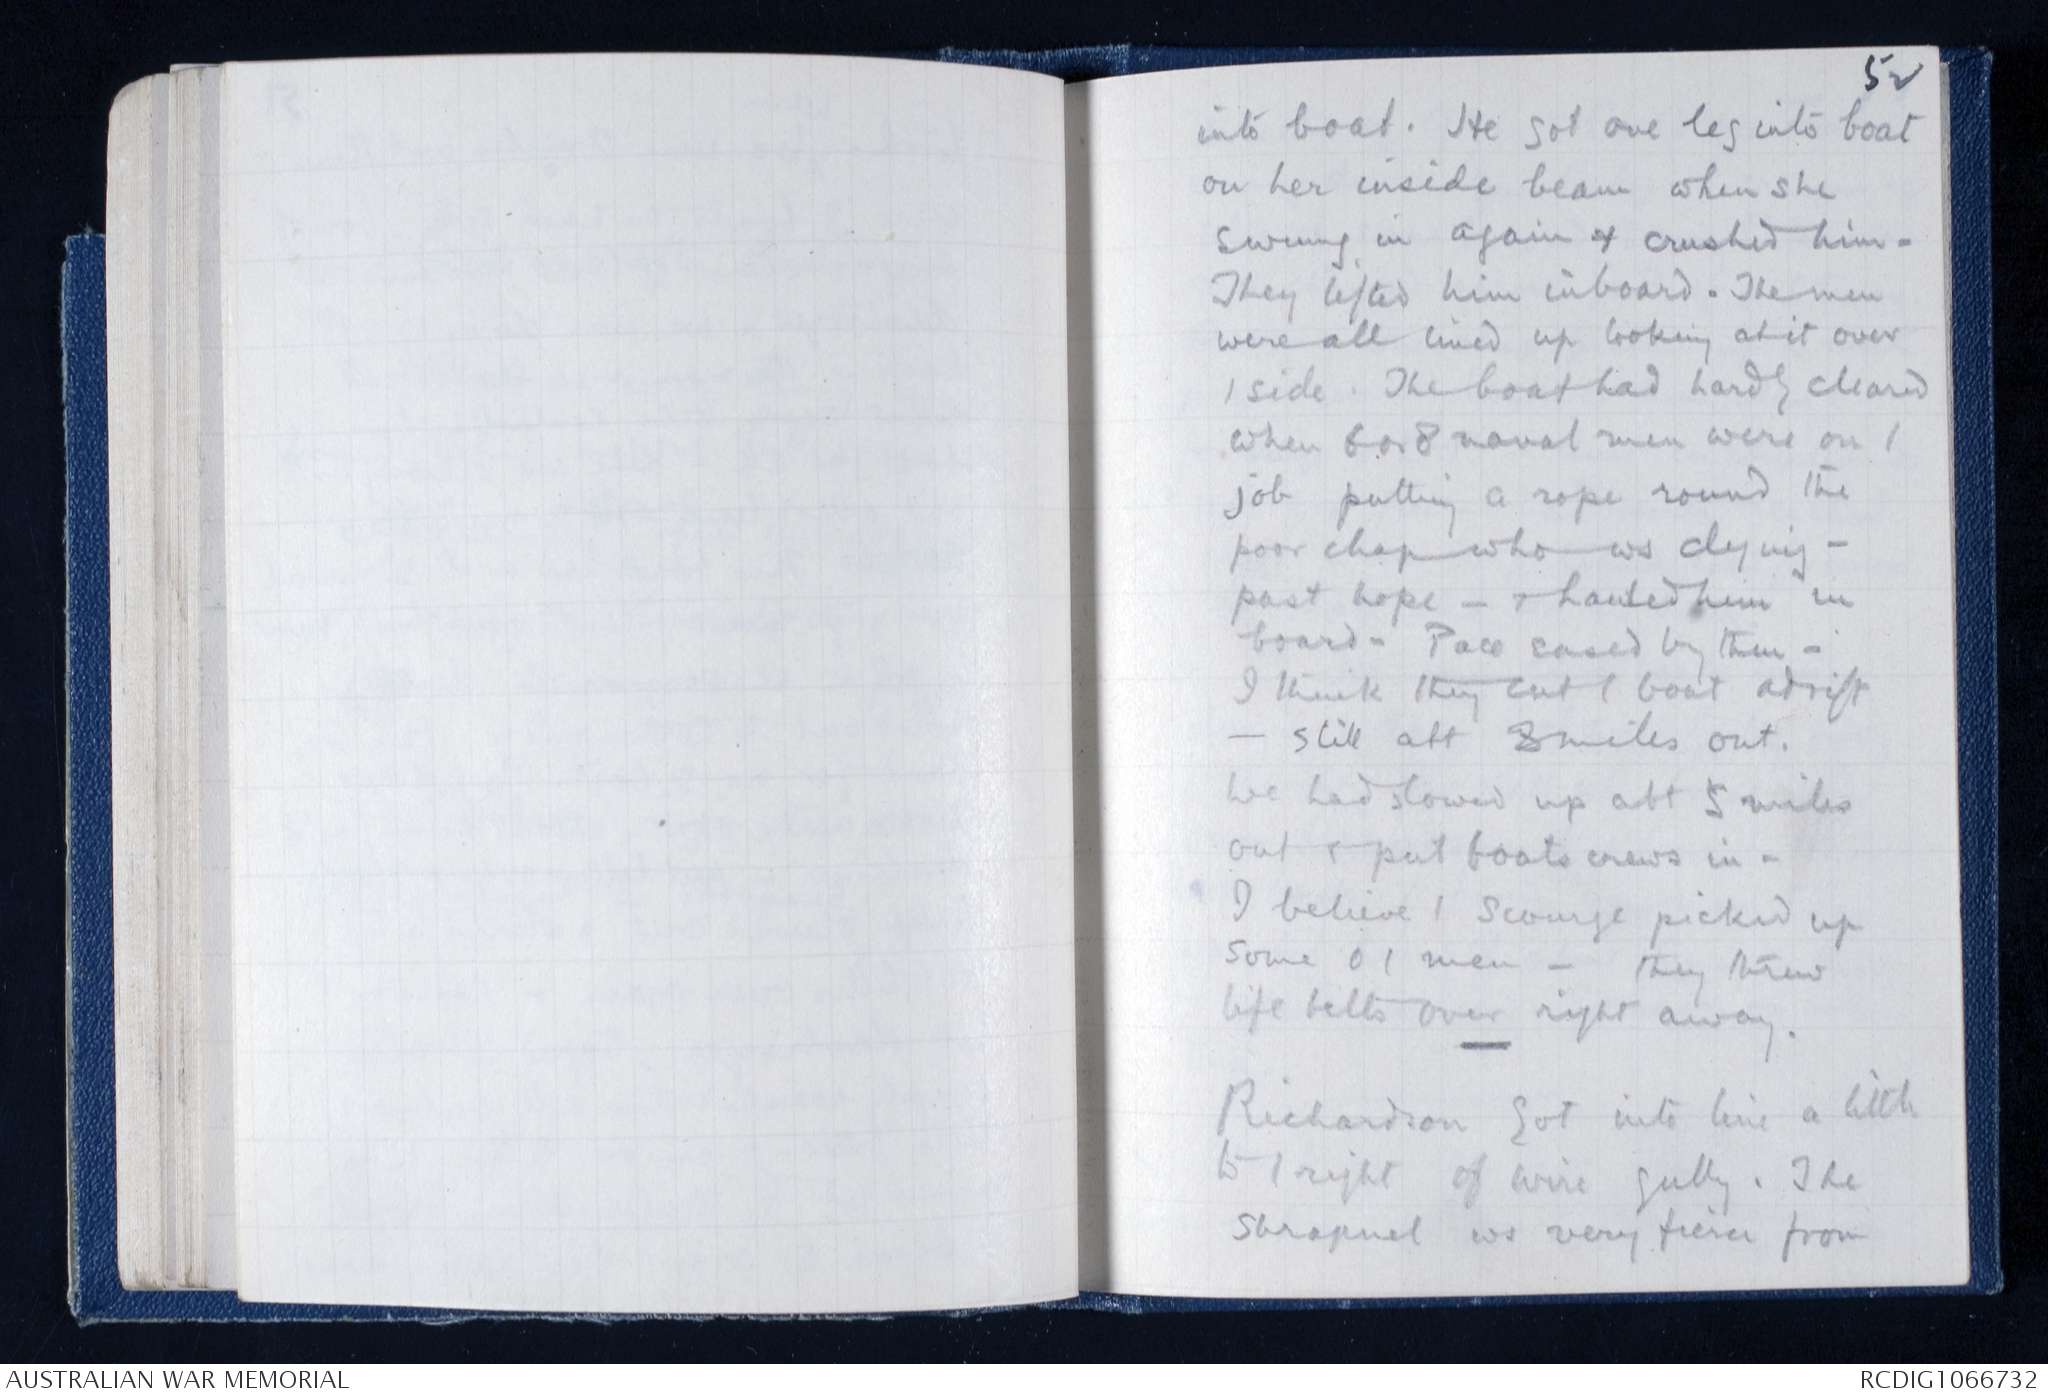 52
into boat. He got one leg into boat
on her inside beam when she
swung in again & crushed him -
They lifted him inboard. The men
were all lined up looking at it over
/ side. The boat had hardly cleared
when 6 or 8 naval men were on /
job putting a rope round the
poor chap who ws dying -
past hope - & hauled him in
board - Pace eased by then -
I think they cut / boat adrift
- still abt 8 miles out.
We had slowed up abt 5 miles
out & put boats crews in -
I believe / Scourge picked up
some o / men - they threw
life belts over right away.
Richardson got into line a little
to / right of wire gully. The
shrapnel ws very fierce from
AUSTRALIAN WAR MEMORIAL
RCDIG1066732